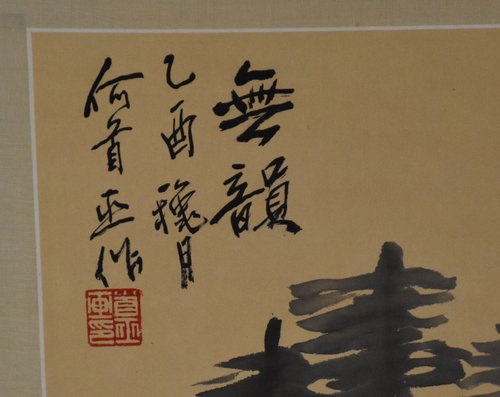 無韻
乙酉穐月
何首巫作